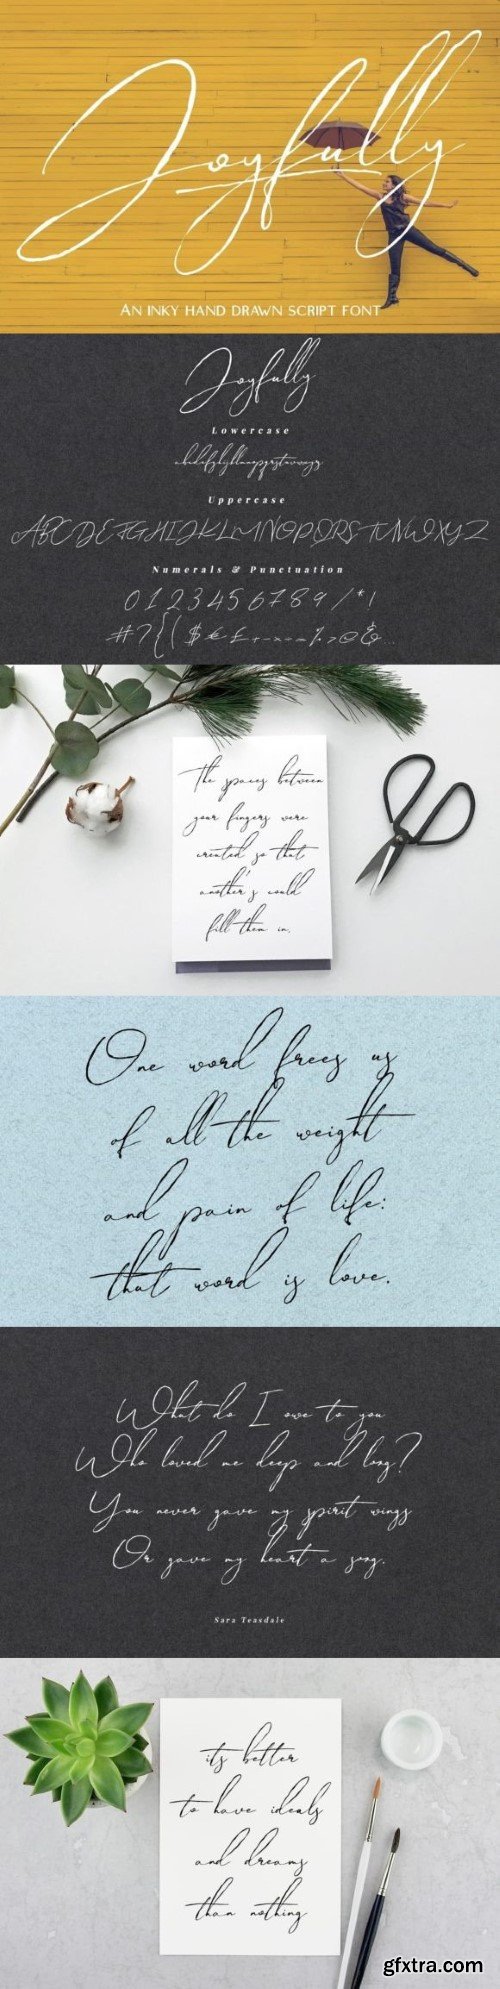 Joyfully
AN INKY HAND DRAWN SCRIPT FONT
Joyfully
Lowercase
abcdefghijklmnopqrstuvwxyz
Uppercase
ABCDEFGHIJKLMNOPQRSTUVWXYZ
Numerals & Punctuation
0123456789/*!
#?{($€£+-×=%>@&...
The spaces between
your fingers were
created so that
another's could
fill them in.
One word frees us
of all the weight
and pain of life:
that word is love.
What do I owe to you
Who loved me deep and long?
You never gave my spirit wings
Or gave my heart a song.
Sara Teasdale
its better
to have ideals
and dreams
than nothing
gfxtra.com